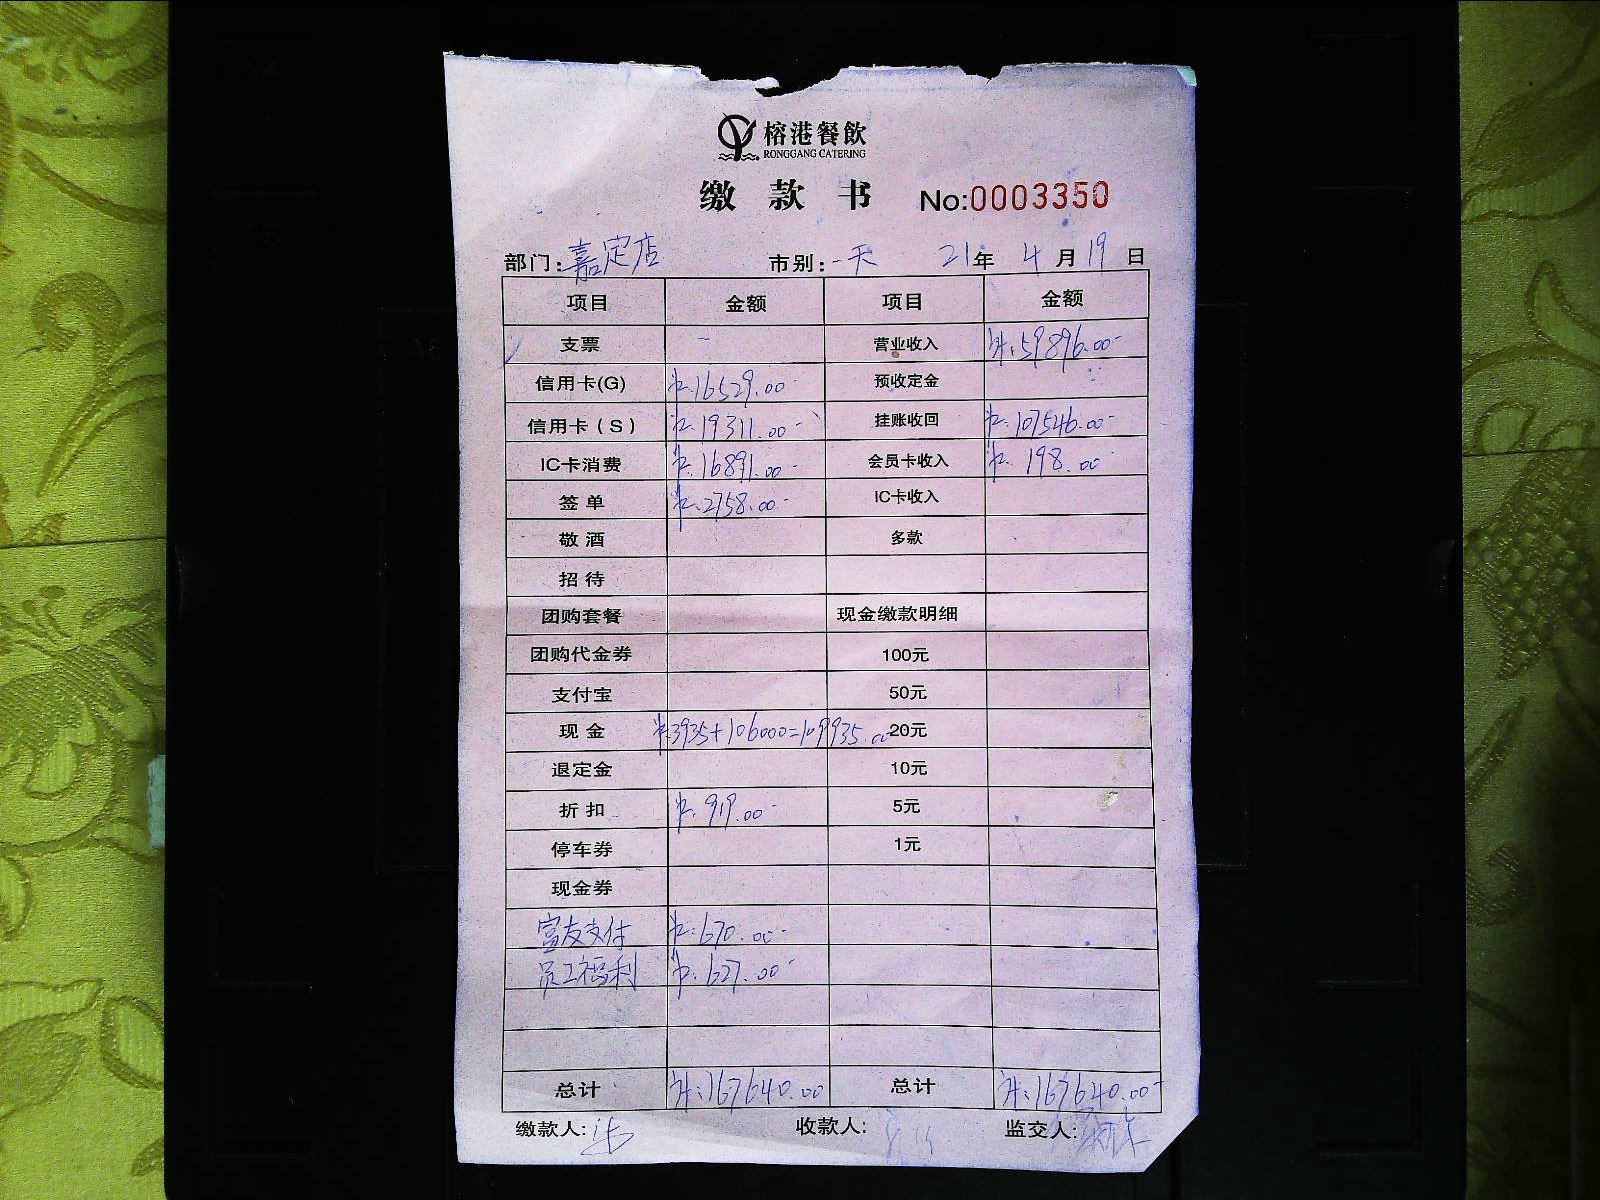 榕港餐飲
RONGGANG CATERING
缴 款 书 No:0003350
部门:嘉定店 市别:一天 21年 4月 19日
项目 金额 项目 金额
支票 - 营业收入 ¥:59896.00-
信用卡(G) ¥.16529.00- 预收定金
信用卡(S) ¥.19311.00- 挂账收回 ¥.107546.00-
IC卡消费 ¥.16891.00- 会员卡收入 ¥.198.00-
签单 ¥.2758.00- IC卡收入
敬酒 多款
招待
团购套餐 现金缴款明细
团购代金券 100元
支付宝 50元
现金 ¥3935+106000=109935.00 20元
退定金 10元
折扣 ¥.919.00- 5元
停车券 1元
现金券
富友支付 ¥:670.00-
员工福利 ¥.627.00-
总计 ¥:167640.00 总计 ¥:167640.00-
缴款人: 收款人: 监交人: